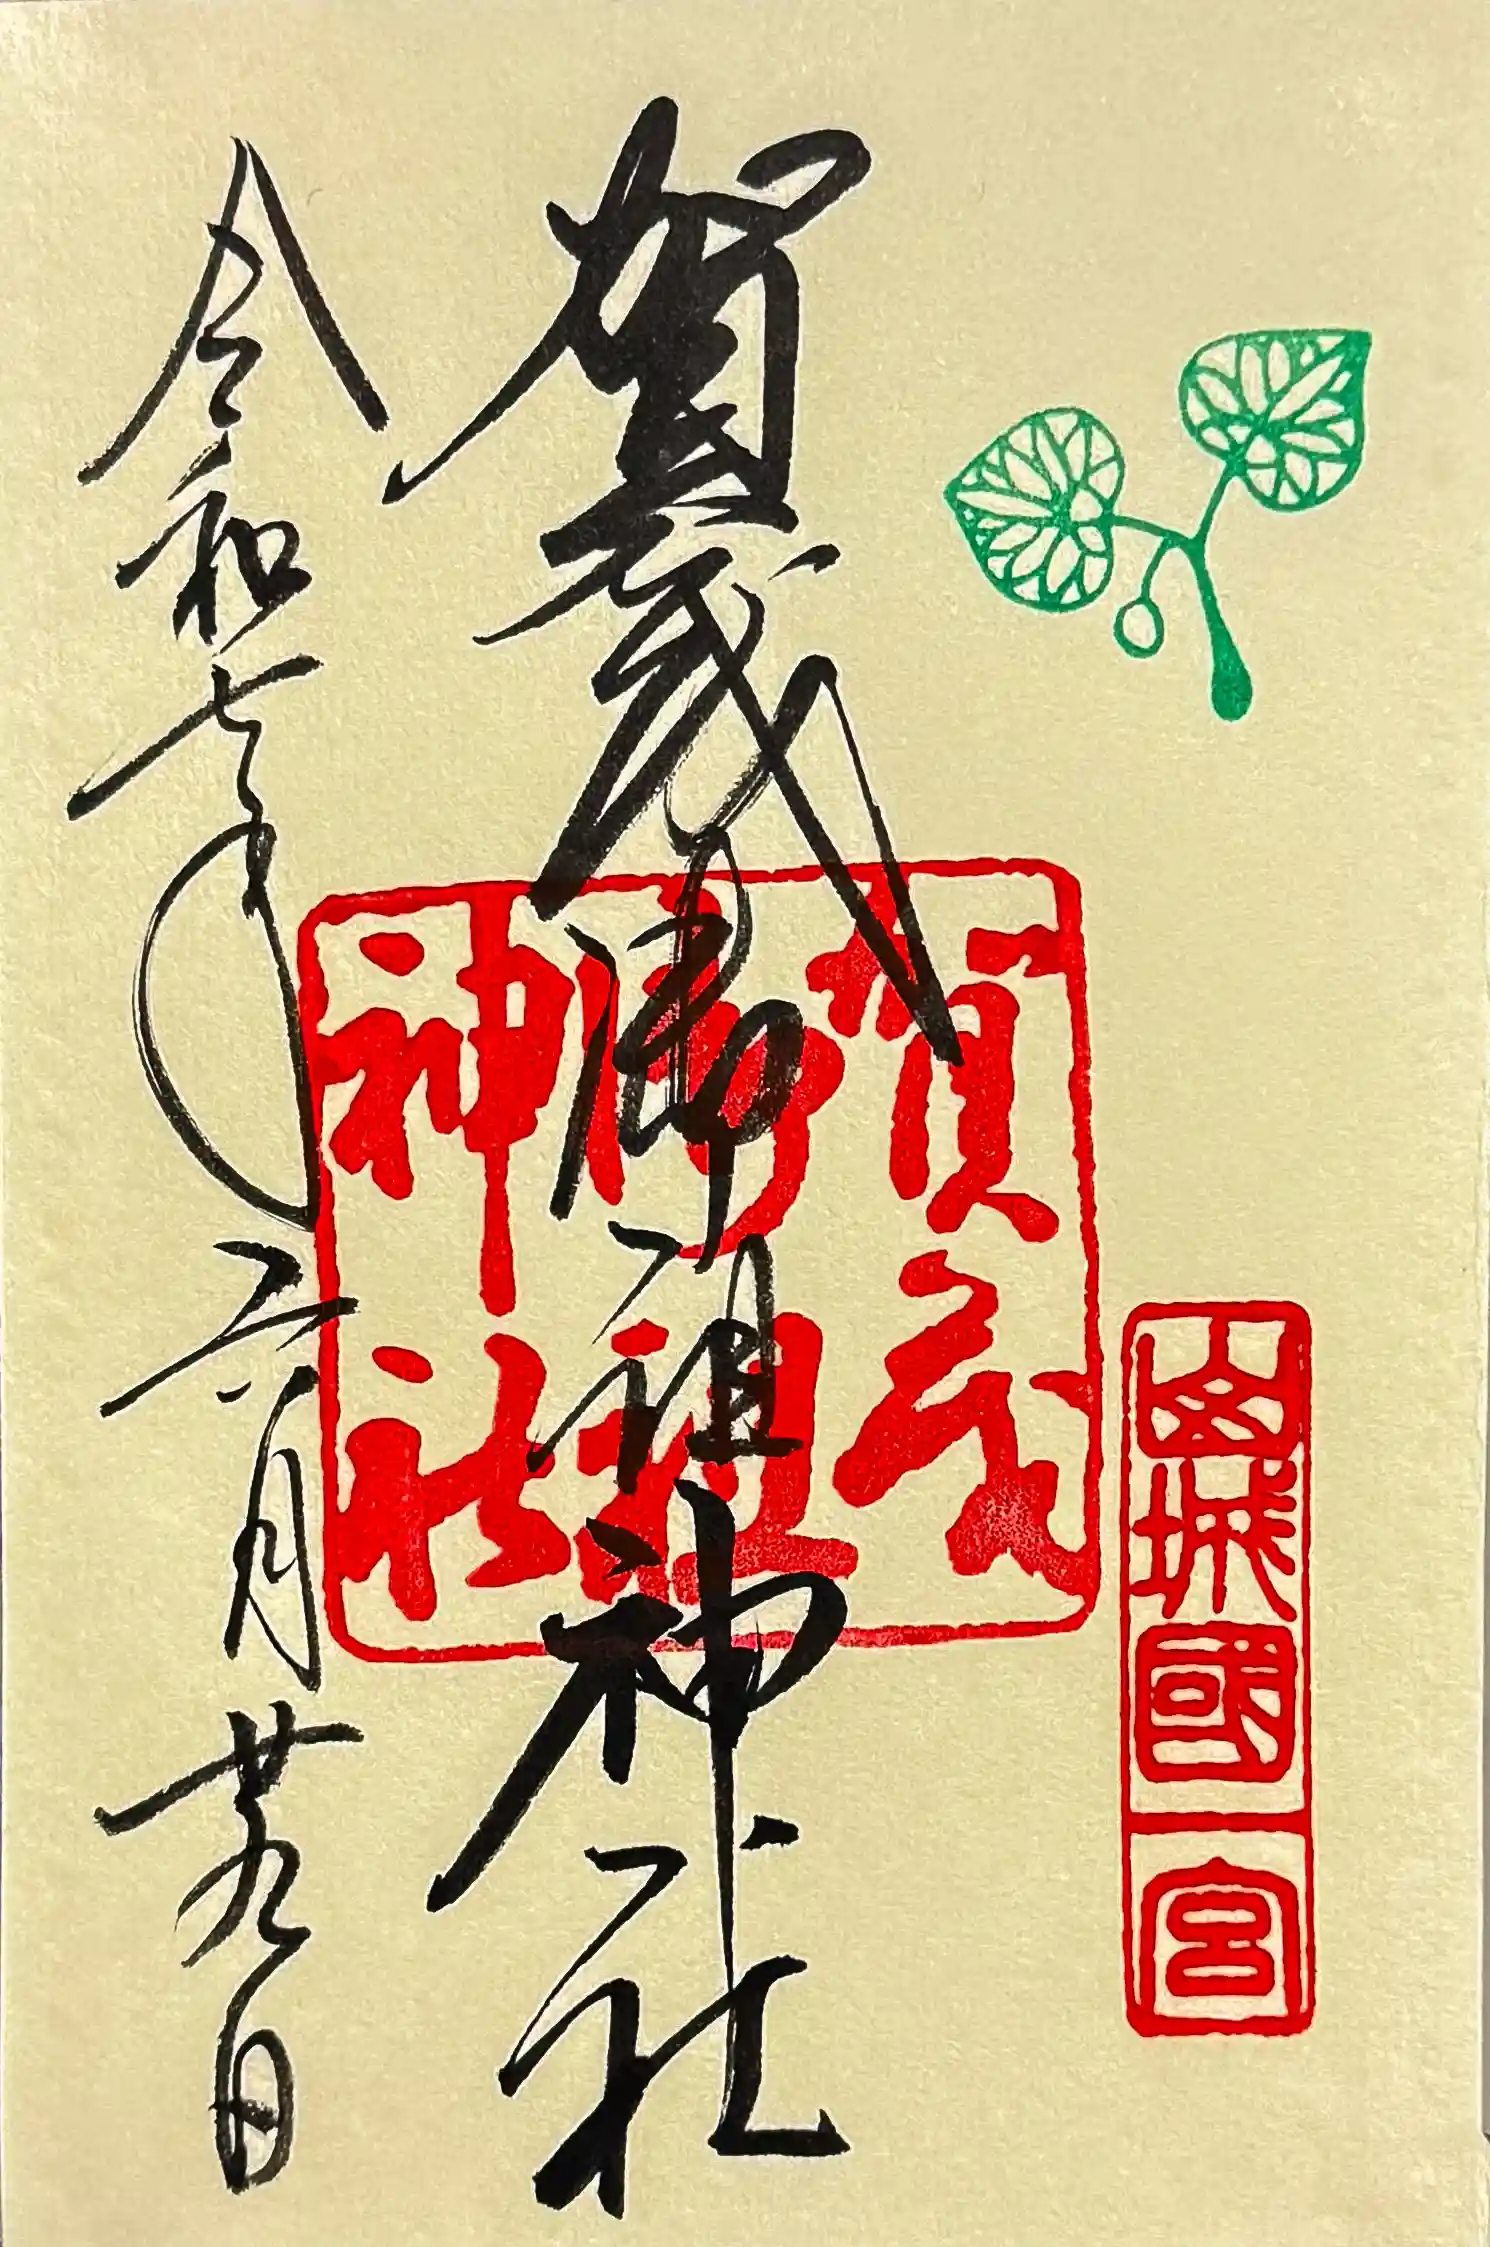 山城國一宮
賀茂御祖神社
賀茂御祖神社
令和七年六月廿九日